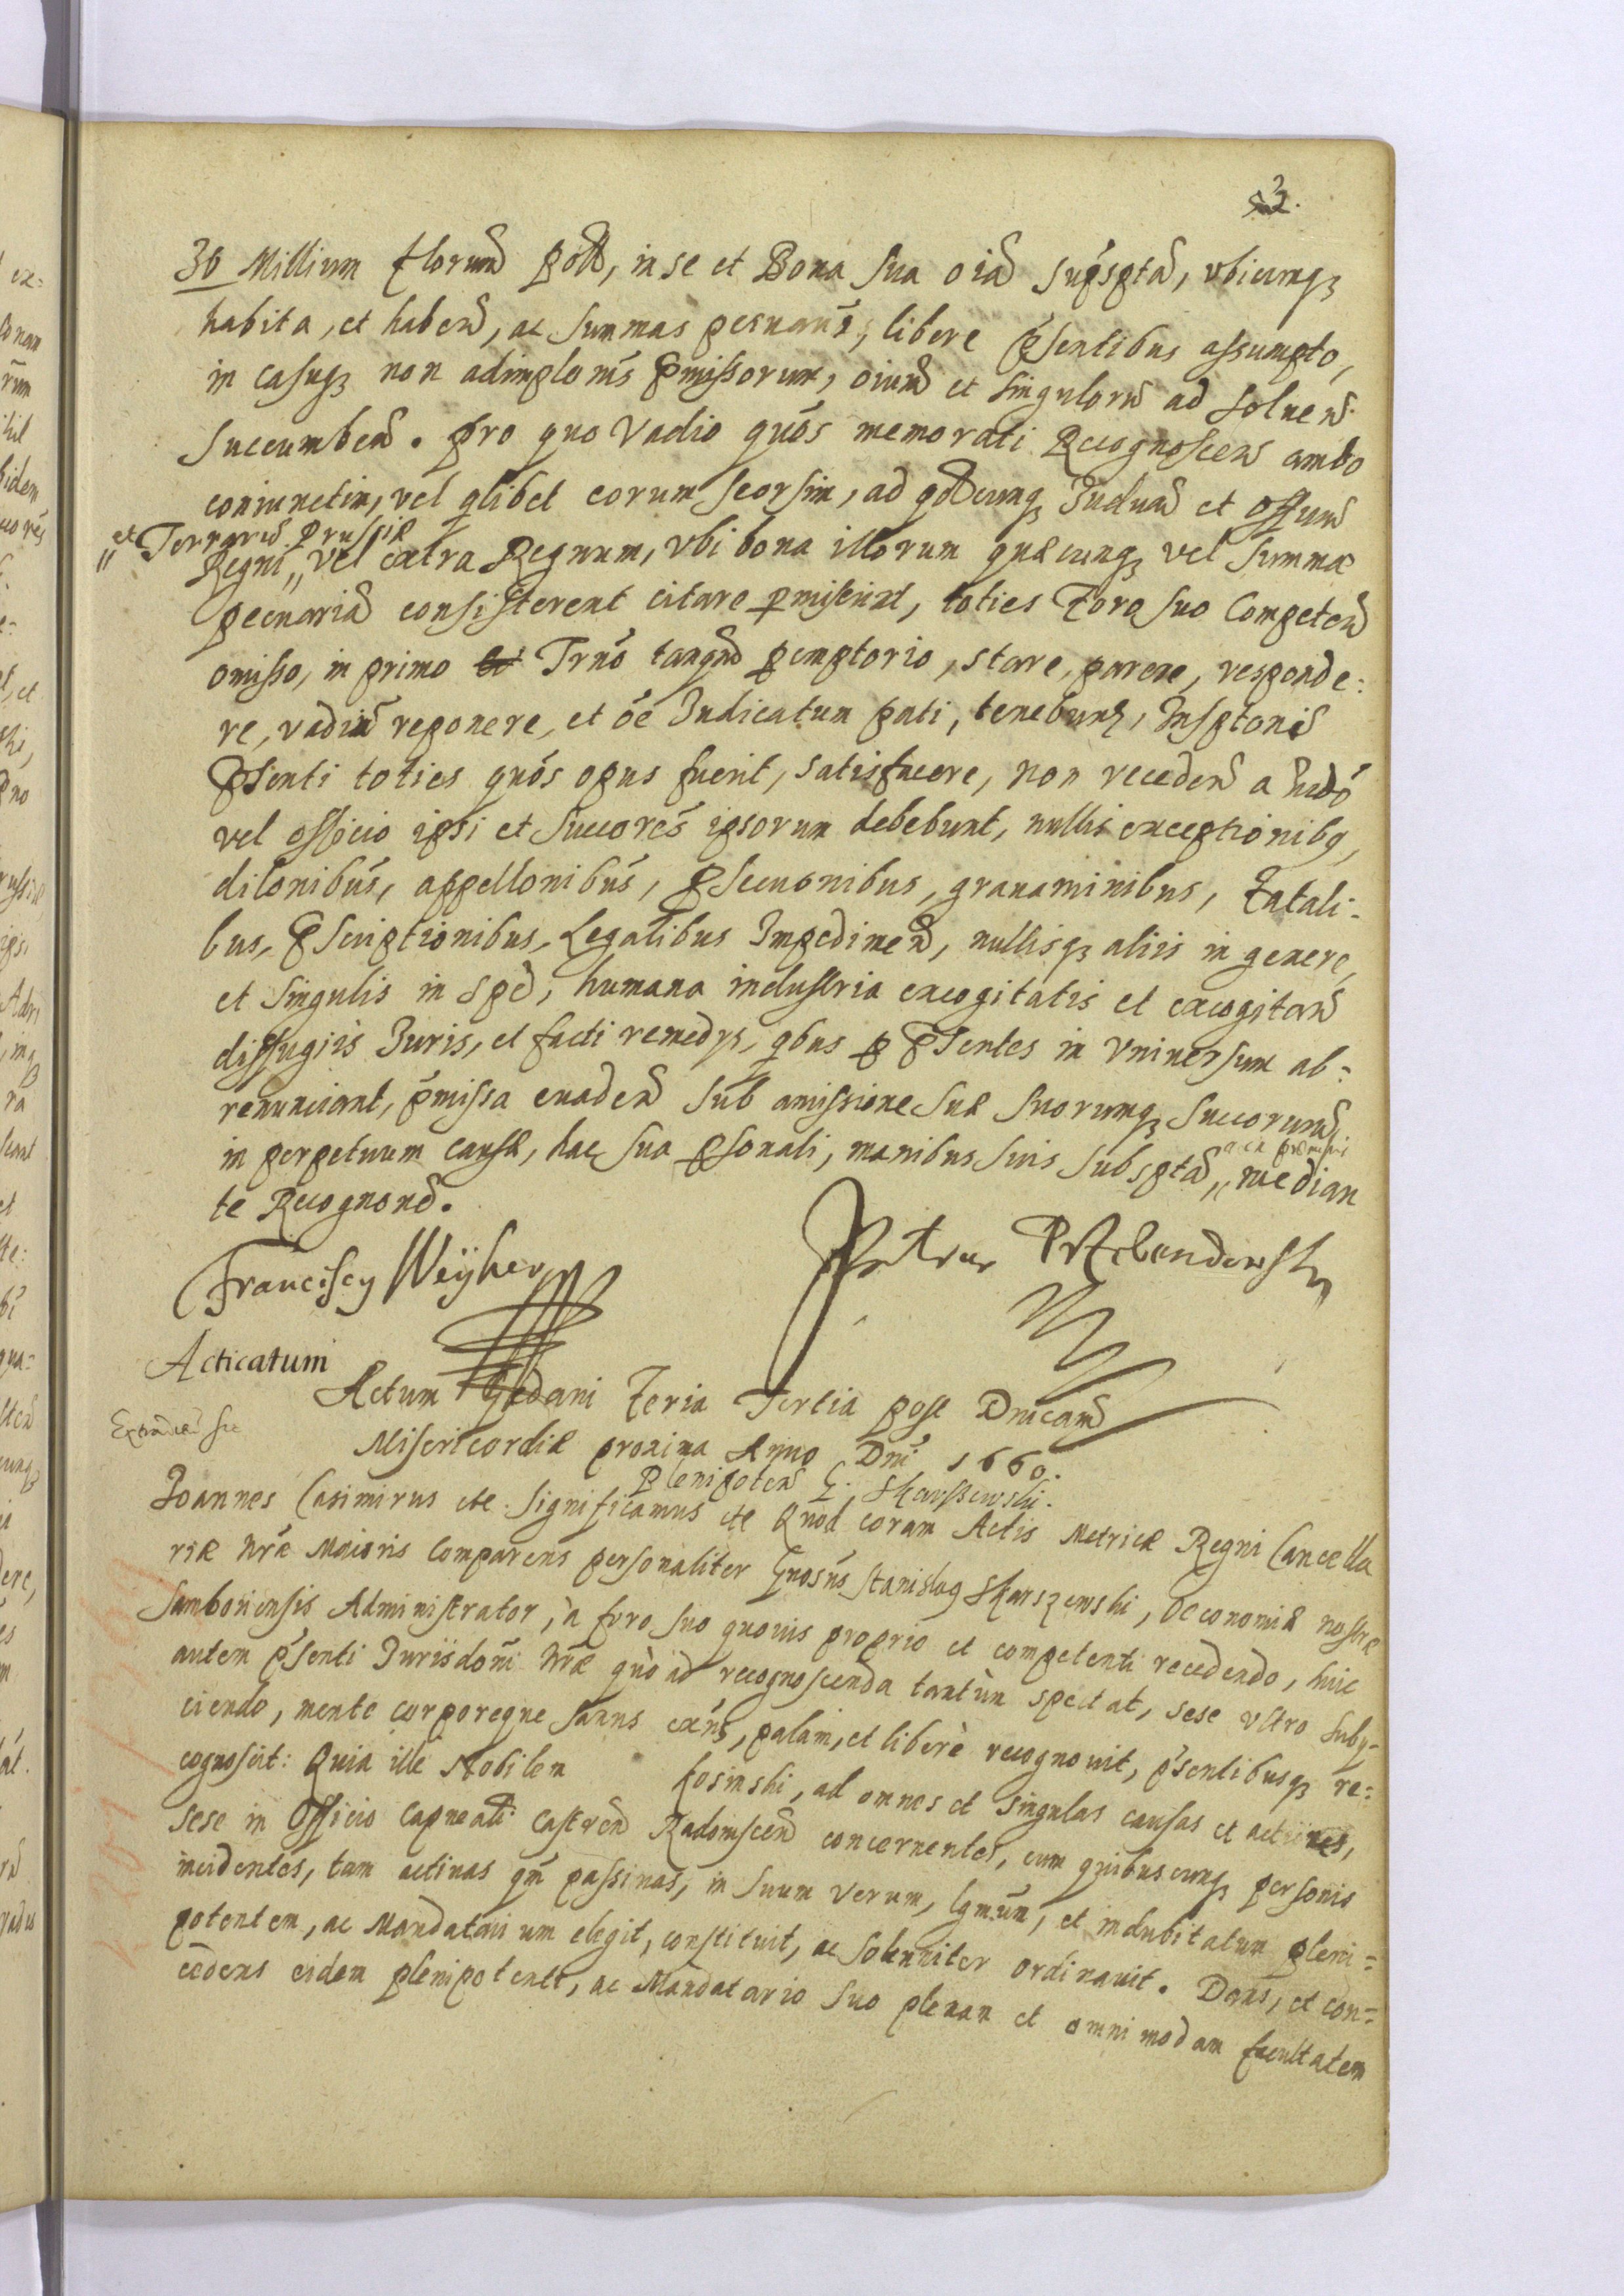 3.
30 Millium florum poll, in se et Bona sua oia supsptа, vbicunq3
habita, et haben, ac summas pecuniar, libere psentibus assumpto,
in casuq3 non adimplonis pmissorum, oium et singulorum ad soluen
succumben. pro quo Vadio quos memorati Recognoscen ambo
coniunctim, vel qlibet eorum seorsim, ad qodcunq3 Iudum et Offum
et Terrarum prussiæ
Regni,, vel extra Regnum, vbi bona illorum quæcunq3 vel summæ
pecuariæ consisterent citare pmiserint, toties Foro suo Competen
omisso, in primo Trno tanqm pemptorio, stare, parere, responde:
re, vadium reponere, et oe Iudicatum pati, tenebunt, Insptonis
psenti toties quos opus fuerit, satisfacere, non receden a Iudo
vel officio ipsi et succores ipsorum debebunt, nullis exceptionibq,
dilonibus, appellonibus, psecuonibus, grauaminibus, Fatali-
bus, pscriptionibus, Legalibus Impedimen, nullisq3 aliis in genere,
et singulis in spe, humana industria excogitatis et excogitan
diffugiis Iuris, et facti remedys, qbus p psentes in vniuersum ab:
renunciant, pmissa euaden sub amissione suæ suorumq3 succorum
in perpetuum causæ, hac sua psonali, manibus suis subsptа,, median
te Recognone.
Franciscq Weÿher
Petrus Prebendowski
Acticatum
Actum Gedani Feria Tertia post Dnicam
Misericordiæ proxima Anno Dni 1660.
Plenipoten G. Skarszewski.
Joannes Casimirus etc. significamus etc Quod coram Actis Metricæ Regni Cancella
riæ Nræ Maioris Comparens personaliter Gnosus Stanislaq Skarszewski, Oeconomiæ nostræ
Samboriensis Administrator, à foro suo quouis proprio et competenti recedendo, huic
autem psenti Iurisdoni Nræ quò ad recognoscenda tantùm spectat, sese vltro subÿ-
ciendo, mente corporeque sanus exns, palam, et liberè recognouit, psentibusq3 re:
cognoscit: Quia ille Nobilem Kosinski, ad omnes et singulas causas et actiones,
sese in Officio Capneali Castren Radomscen concernentes, cum quibuscunq3 personis
incidentes, tam actiuas qm passiuas, in suum verum, lgmum, et indubitatum pleni=
potentem, ac Mandatarium elegit, constituit, ac solenniter ordinauit. Dans, et con=
cedens eidem plenipotenti, ac Mandatario suo plenam et omnimodam facultatem